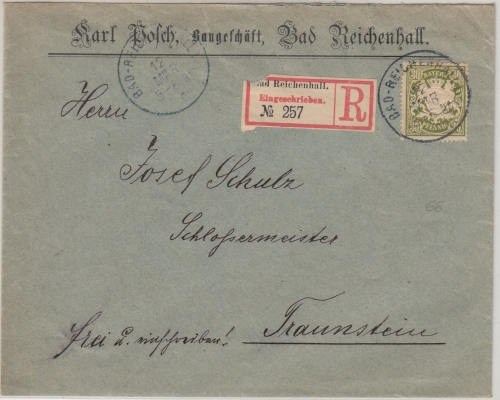 Karl Posch, Baugeschäft, Bad Reichenhall.
BAD-REICHENHALL
12
Bad Reichenhall.
Eingeschrieben.
№ 257
R
BAD-REICHENHALL
BAYERN
PFENNIG
Herrn
Josef Schulz
Schlossermeister
Traunstein
frei u. einschreiben!
66